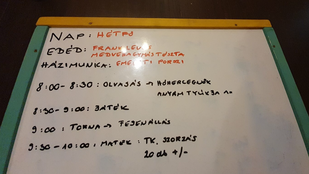 NAP: HÉTFŐ
EBÉD: FRANCLEVES
MEDVEHAGYMÁS TÉSZTA
HÁZIMUNKA: EMELETI PORZI
8:00 - 8:30: OLVASÁS → HÓHERCEGNŐK
8:30 - 9:00: JÁTÉK
9:00: TORNA → FEJENÁLLÁS
9:30 - 10:00: MATEK: TK. SZORZÁS
20 db +/-